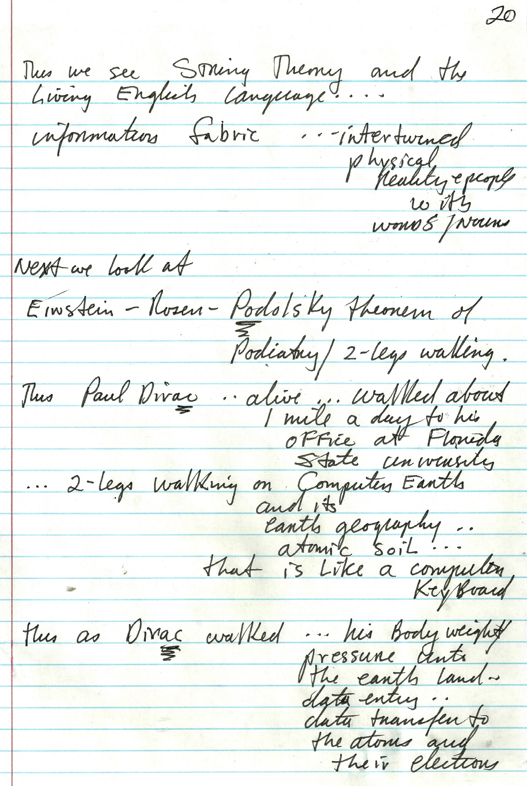 20
Thus we see String Theory and the
Living English Language....
information fabric ...intertwined
physical
Reality + people
with
words/Nouns
Next we look at
Einstein - Rosen - Podolsky theorem of
Podiatry/ 2-legs walking.
Thus Paul Dirac .. alive ... walked about
1 mile a day to his
office at Florida
State University
... 2-legs walking on Computer Earth
and its
earth geography ..
atomic soil ...
that is like a computer
KeyBoard
thus as Dirac walked ... his Body weight
pressure onto
the earth land -
data entry ..
data transfer to
the atoms and
their electrons